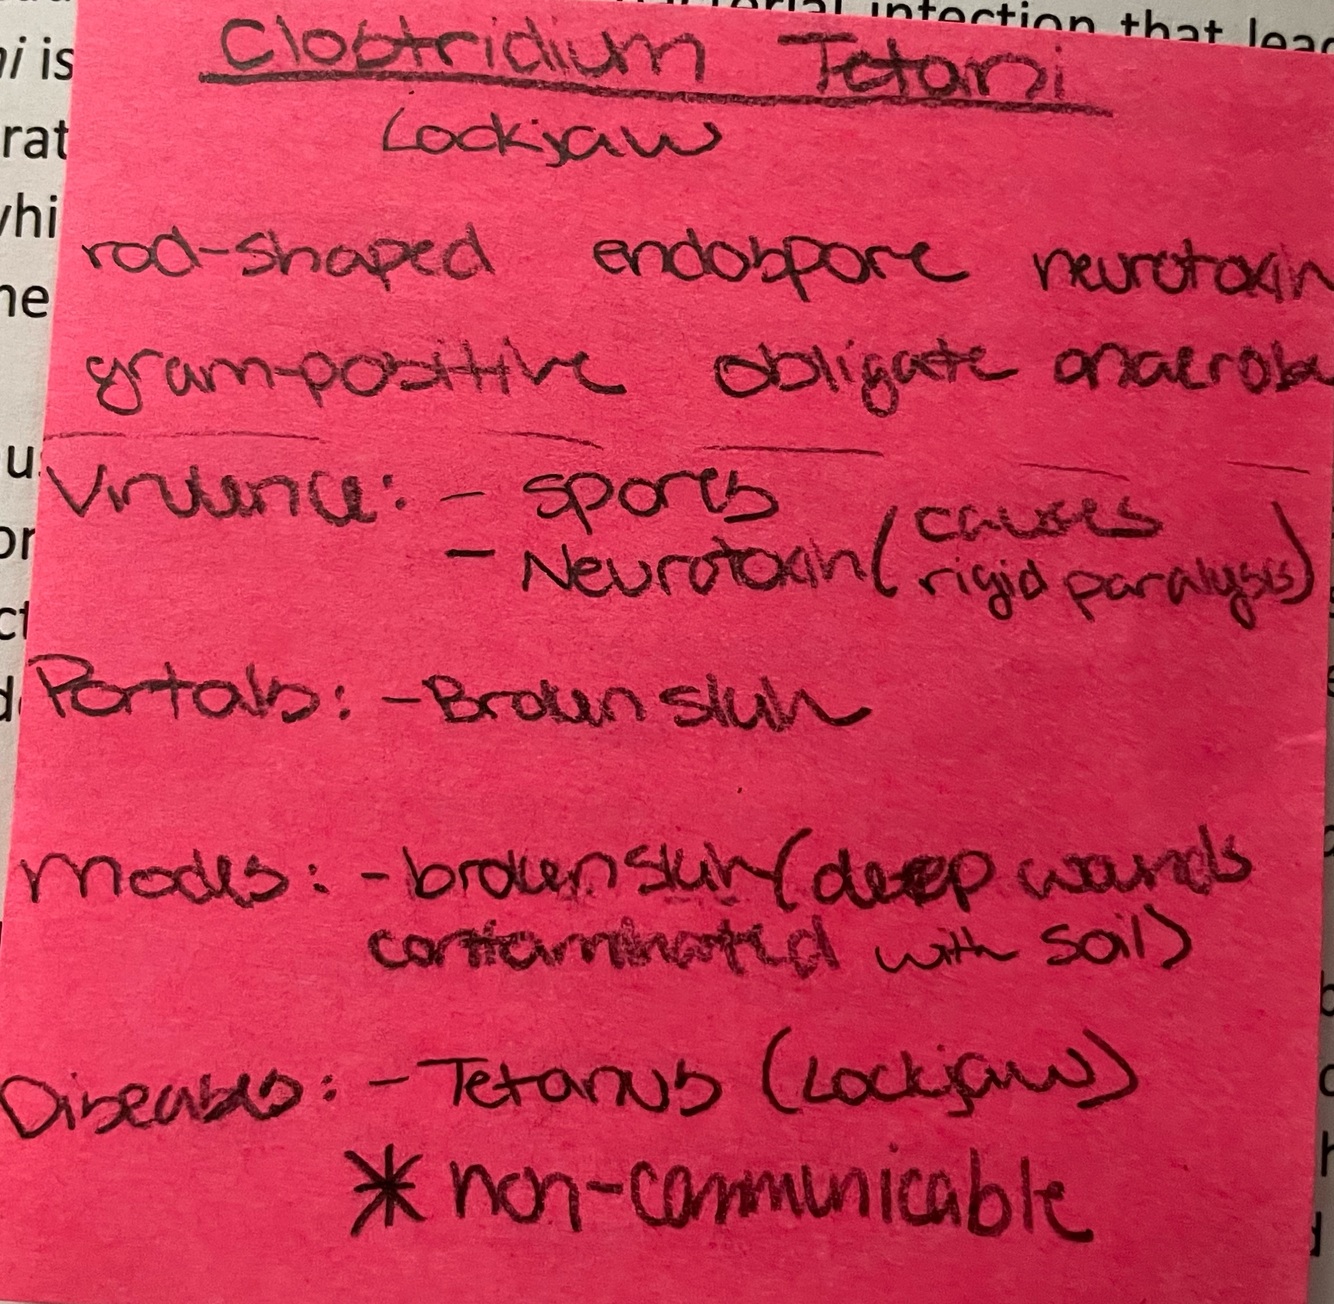 terial infection that lead
ni is
Clostridium Tetani
Lockjaw
rat
whi
rod-shaped endospore neurotoxin
ne
gram-positive obligate anaerobe
Virulence: - spores
- Neurotoxin (causes rigid paralysis)
or
ct
Portals: - Broken skin
Modes: - broken skin (deep wounds
contaminated with soil)
Diseases: - Tetanus (Lockjaw)
* non-communicable